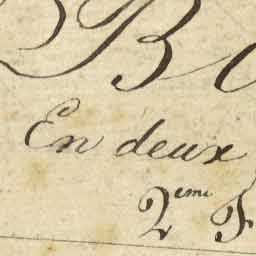 B
En deux
2eme F